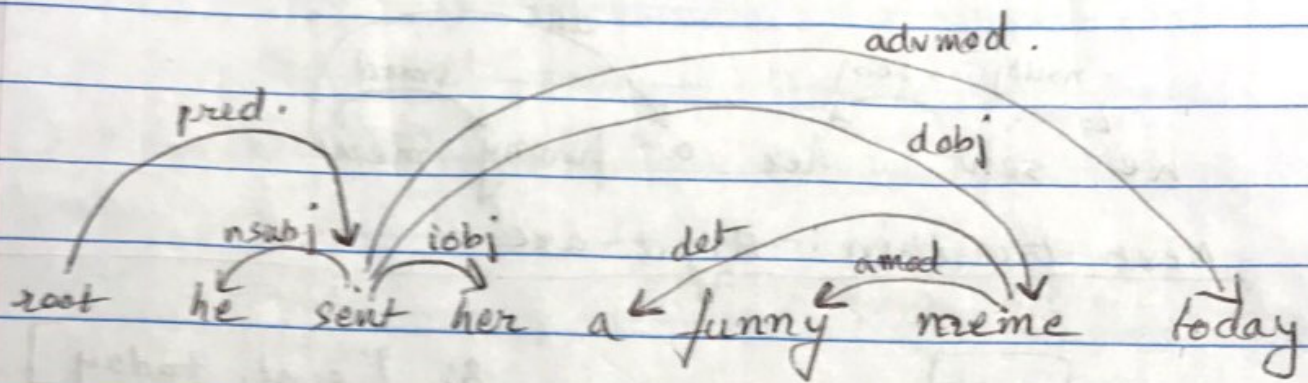 advmod.
pred.
dobj
nsubj iobj det amod
root he sent her a funny meme today